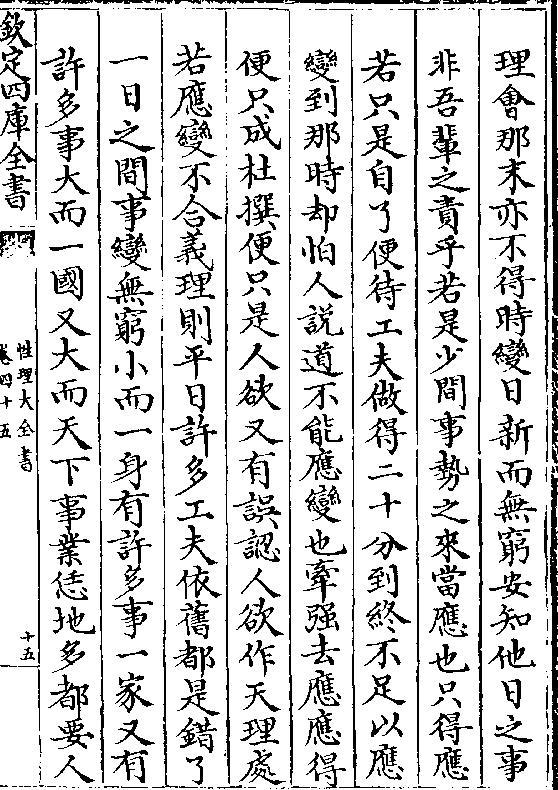 理會那末亦不得時變日新而無窮安知他日之事
非吾輩之責乎若是少間事勢之來當應也只得應
若只是自了便待工夫做得二十分到終不足以應
變到那時却怕人説道不能應變也牽强去應應得
便只成杜撰便只是人欲又有誤認人欲作天理處
若應變不合義理則平日許多工夫依舊都是錯了
一日之間事變無窮小而一身有許多事一家又有
許多事大而一國又大而天下事業恁地多都要人
欽定四庫全書
性理大全書
卷四十五
十五